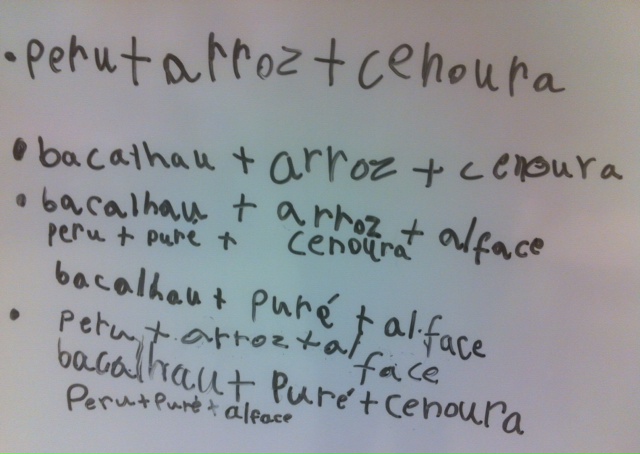 • peru + arroz + cenoura
• bacalhau + arroz + cenoura
• bacalhau + arroz + alface
peru + puré + cenoura
bacalhau + puré + alface
• peru + arroz + alface
bacalhau + Puré + cenoura
Peru + Puré + alface